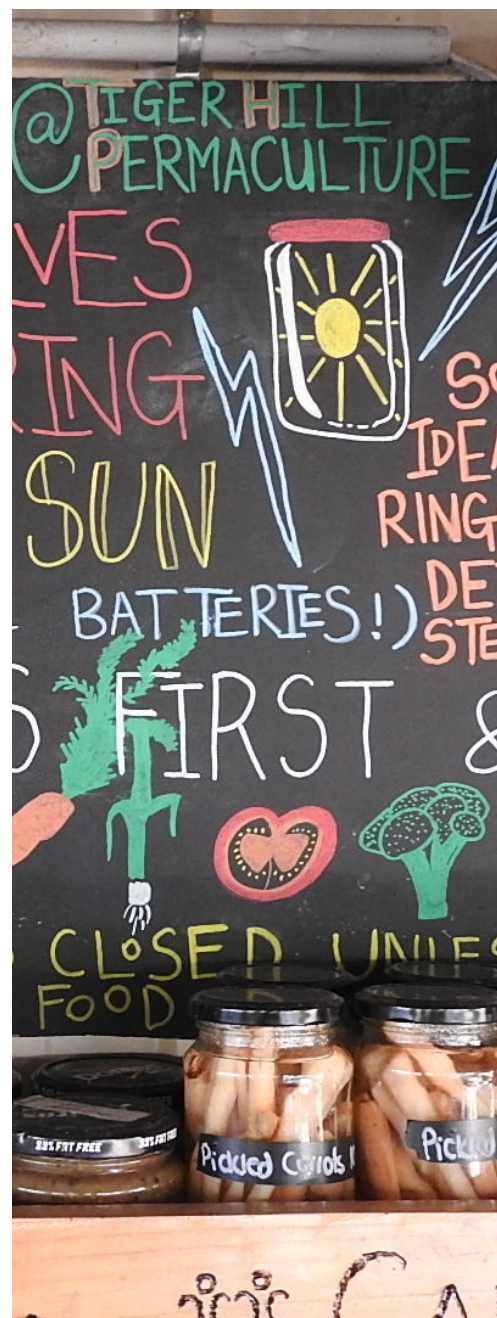 @TIGER HILL
PERMACULTURE
VES
RING
SUN
BATTERIES!)
IDEA
RING
DE
STE
FIRST &
CLOSED UNLES
FOOD
99% FAT FREE 99% FAT FREE
Pickled Carrots
Pickl
CA